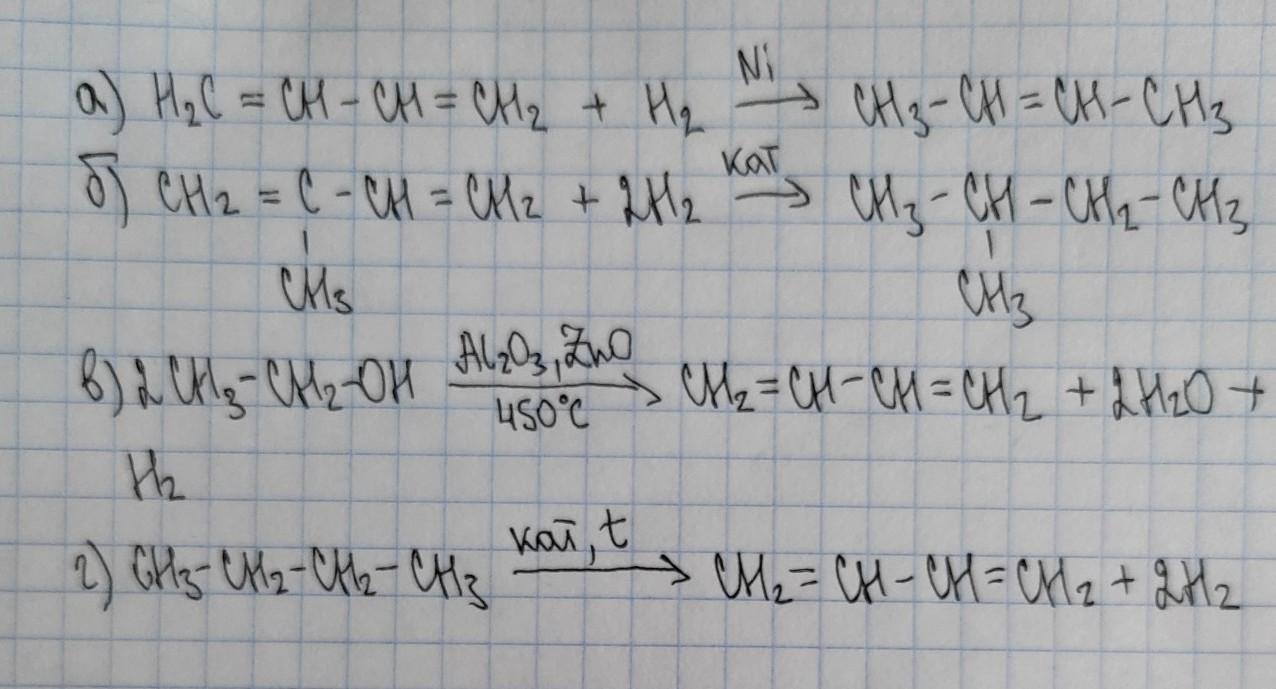 а) H₂C = CH - CH = CH₂ + H₂ Ni → CH₃ - CH = CH - CH₃
б) CH₂ = C - CH = CH₂ + 2H₂ кат → CH₃ - CH - CH₂ - CH₃
CH₃ CH₃
в) 2CH₃-CH₂-OH Al₂O₃, ZnO 450°C → CH₂=CH-CH=CH₂ + 2H₂O +
H₂
г) CH₃-CH₂-CH₂-CH₃ кат, t → CH₂=CH-CH=CH₂ + 2H₂